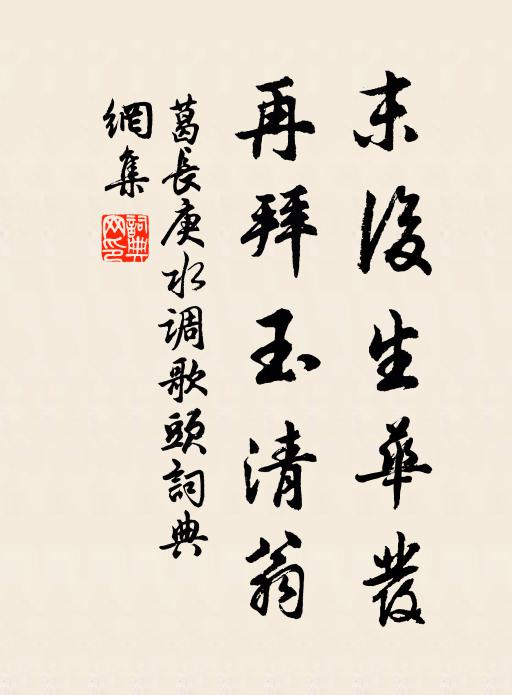 末後生華發
再拜玉清翁
葛長庚水调歌頭詞典
網集
詞典網印